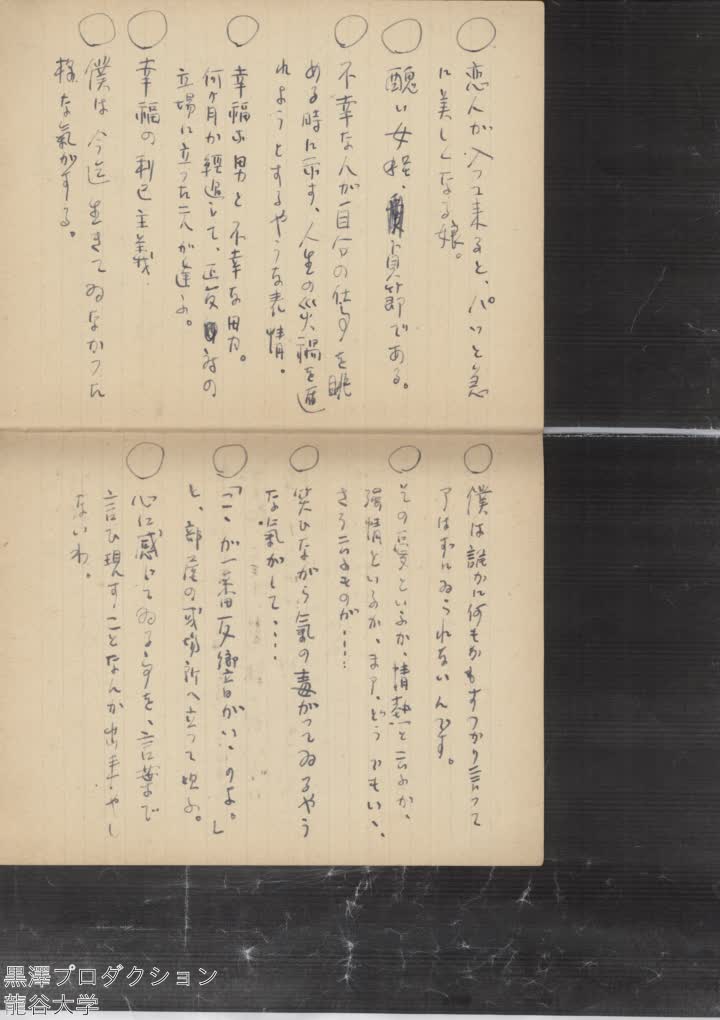 ○恋人が入って来ると、パッと急
に美しくなる娘。
○醜い女程、貞節である。
○不幸な人が自分の仕事を眺
める時に示す、人生の災禍を
れようとするやうな表情。
○幸福な男と不幸な男。
何ヶ月か経過して、正反対の
立場に立った二人が逢ふ。
○幸福の利己主義
○僕は今迄生きてゐなかった
様な気がする。
○僕は誰かに何もかもすつかり言って
了はずにゐられないんです。
○その憂といふか、情熱と云ふか、
強情といふか、まァ、どうでもいゝ、
さう云ふものが……
○笑ひながら気の毒がってゐるやう
な気がして、……
○「こゝが一番反響がいゝのよ。」
と、部屋の或場所へ立って云ふ。
○心に感じてゐる事を、言葉で
言ひ現すことなんか出来やし
ないわ。
黒澤プロダクション
龍谷大学